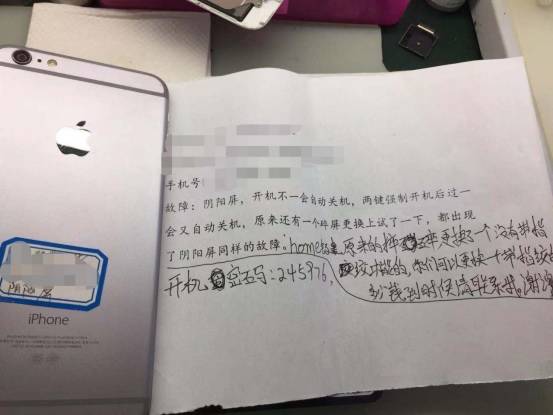 手机号
故障：阴阳屏，开机不一会自动关机，两键强制开机后过一
会又自动关机，原来还有一个坏屏更换上试了一下，都出现
了阴阳屏同样的故障，home 原来的摔 更换了一个没有指
开机 密码：245976，纹功能的，你们可以更换一个带指纹的
多少钱到时候 联系我。谢谢
阴阳屏
iPhone